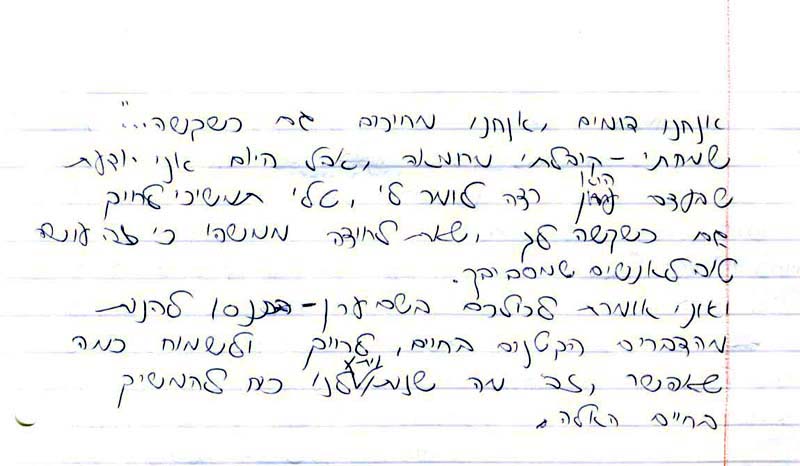 אנחנו דומים, אנחנו מחייכים גם כשקשה..."
שמחתי - קיבלתי מחמאה, אבל היום אני יודעת
שבעצם הוא רצה לומר לי, טלי תמשיכי לחייך
גם כשקשה לך, שאת לחידה ממשהי כי זה עושה
טוב לאנשים שמסביבך.
ואני אומרת לכולכם בשם ערן - תנסו להנות
מהדברים הקטנים בחיים, לחייך ולשמוח כמה
שאפשר, זה מה שנותן לנו כח להמשיך
בחיים האלה.